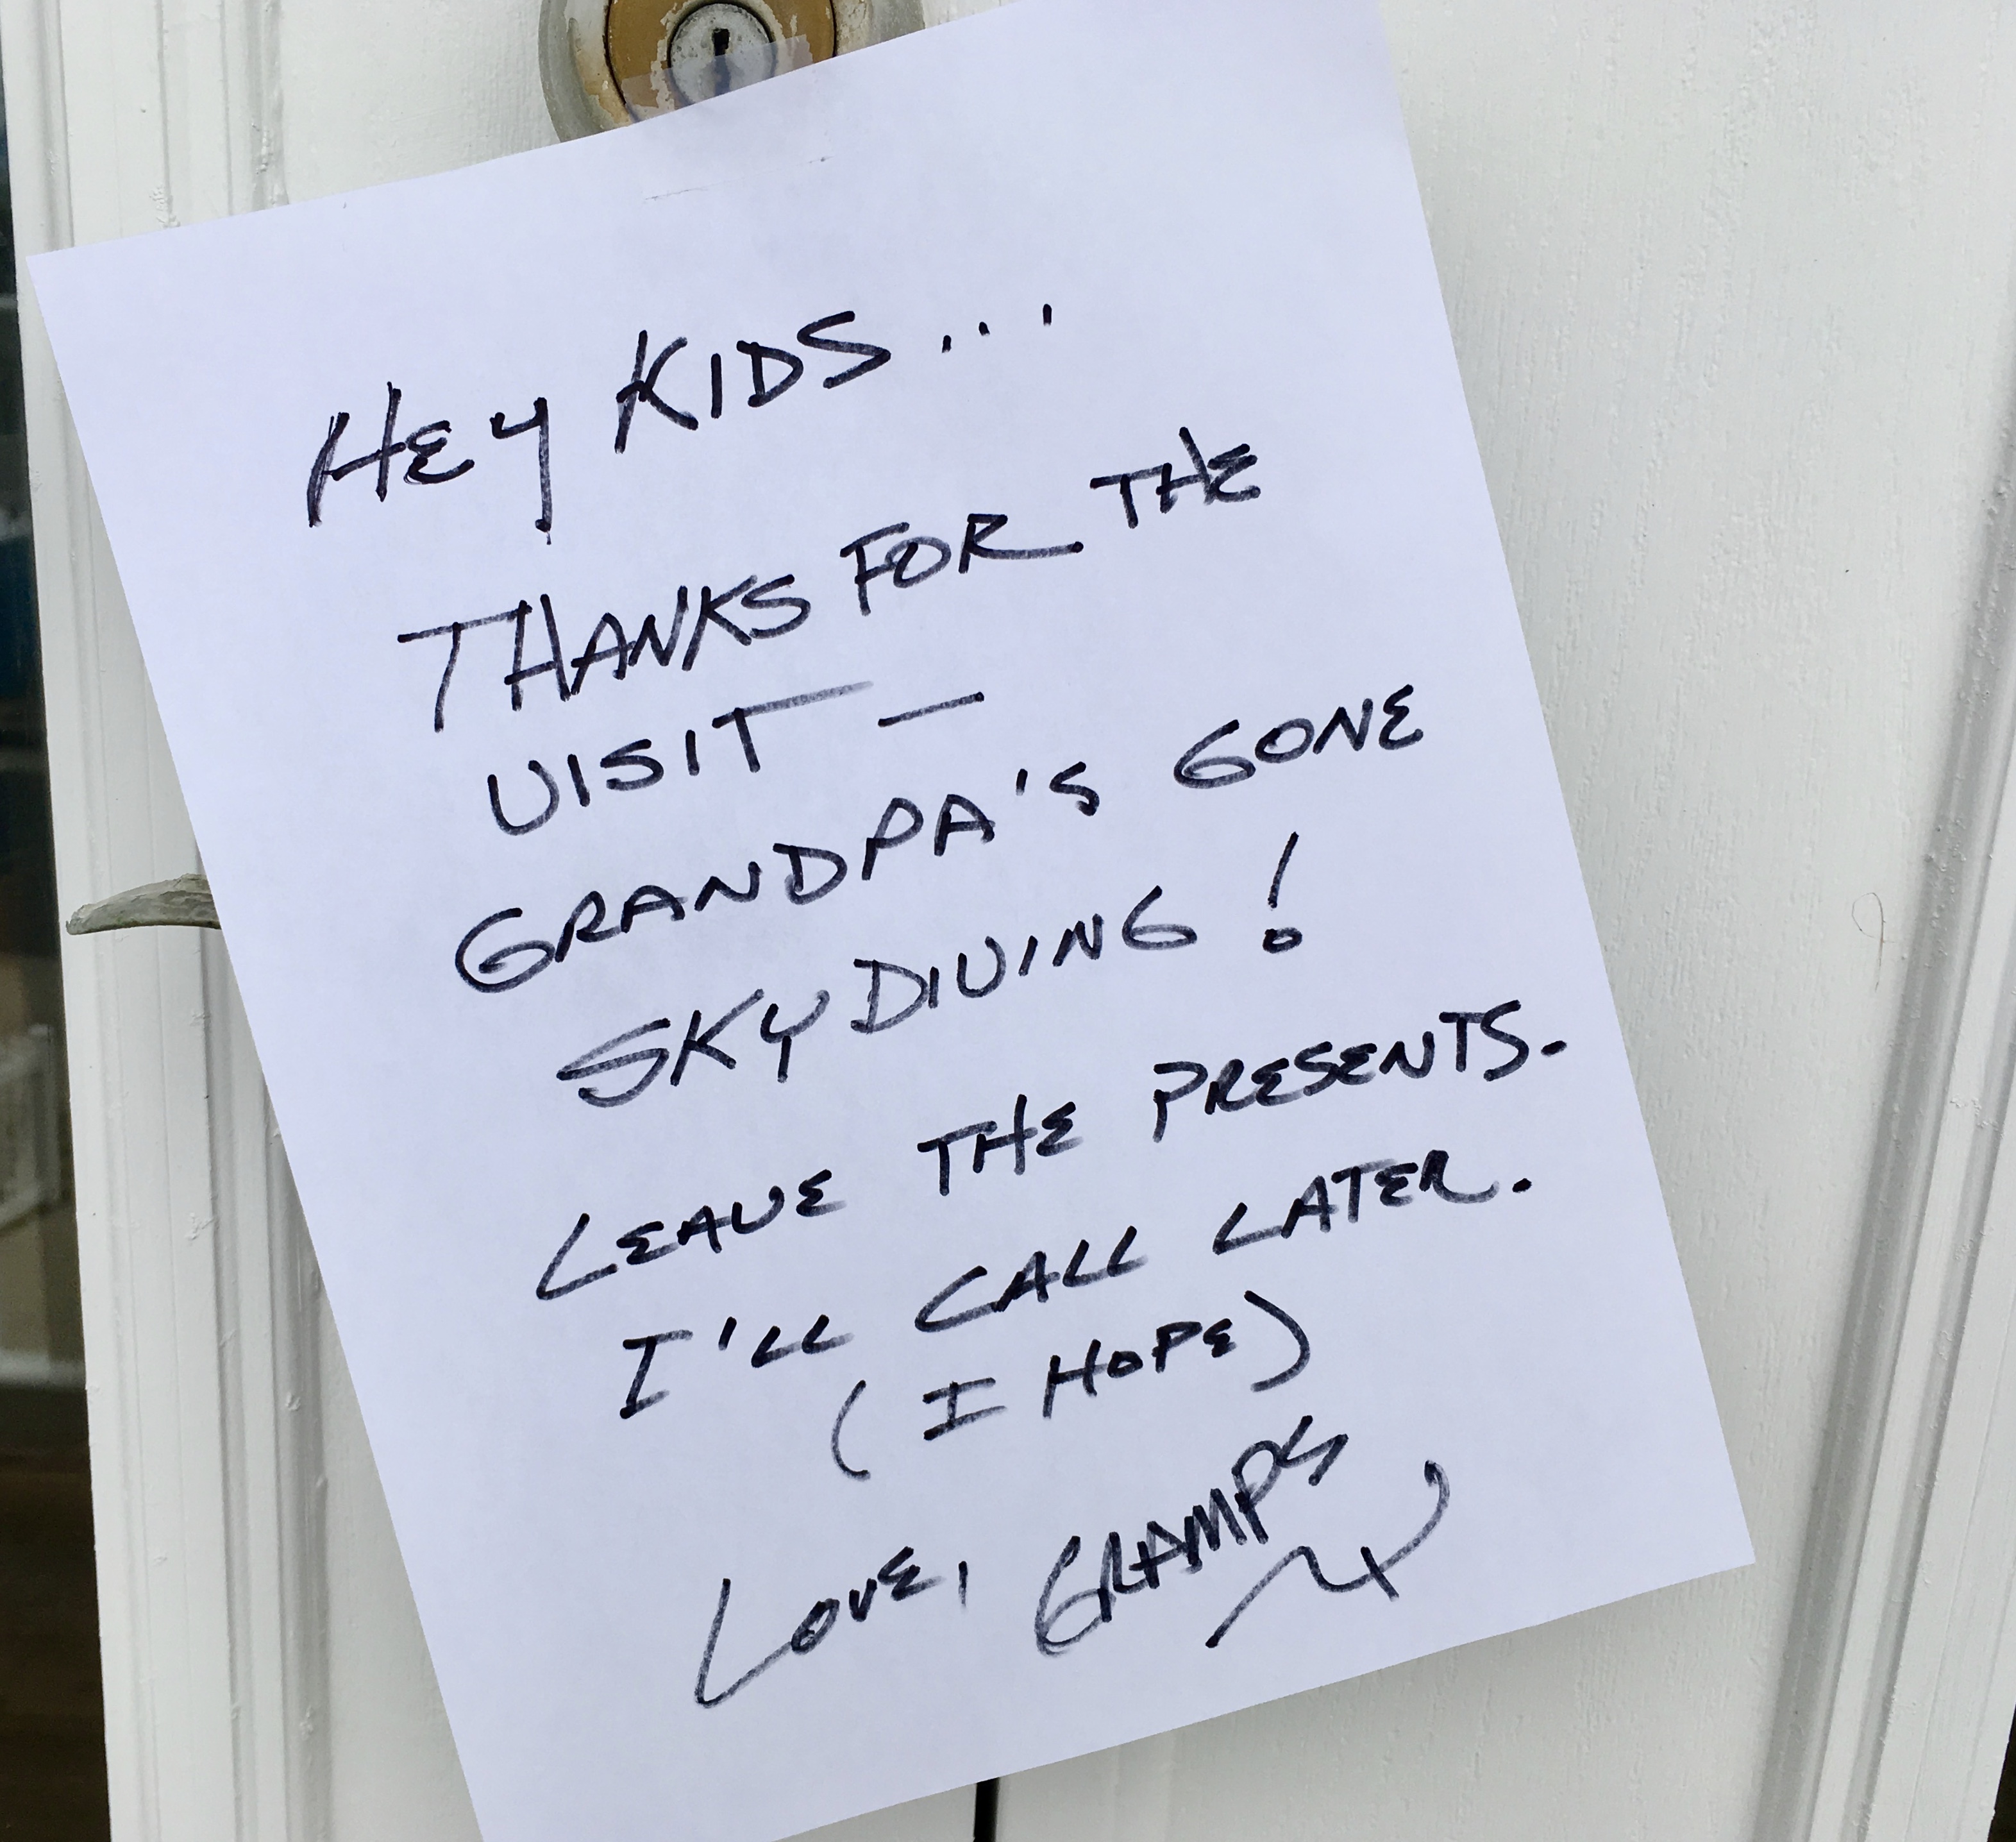 HEY KIDS...
THANKS FOR THE
VISIT —
GRANDPA'S GONE
SKYDIVING!
LEAVE THE PRESENTS.
I'LL CALL LATER.
(I HOPE)
LOVE, GRAMPS